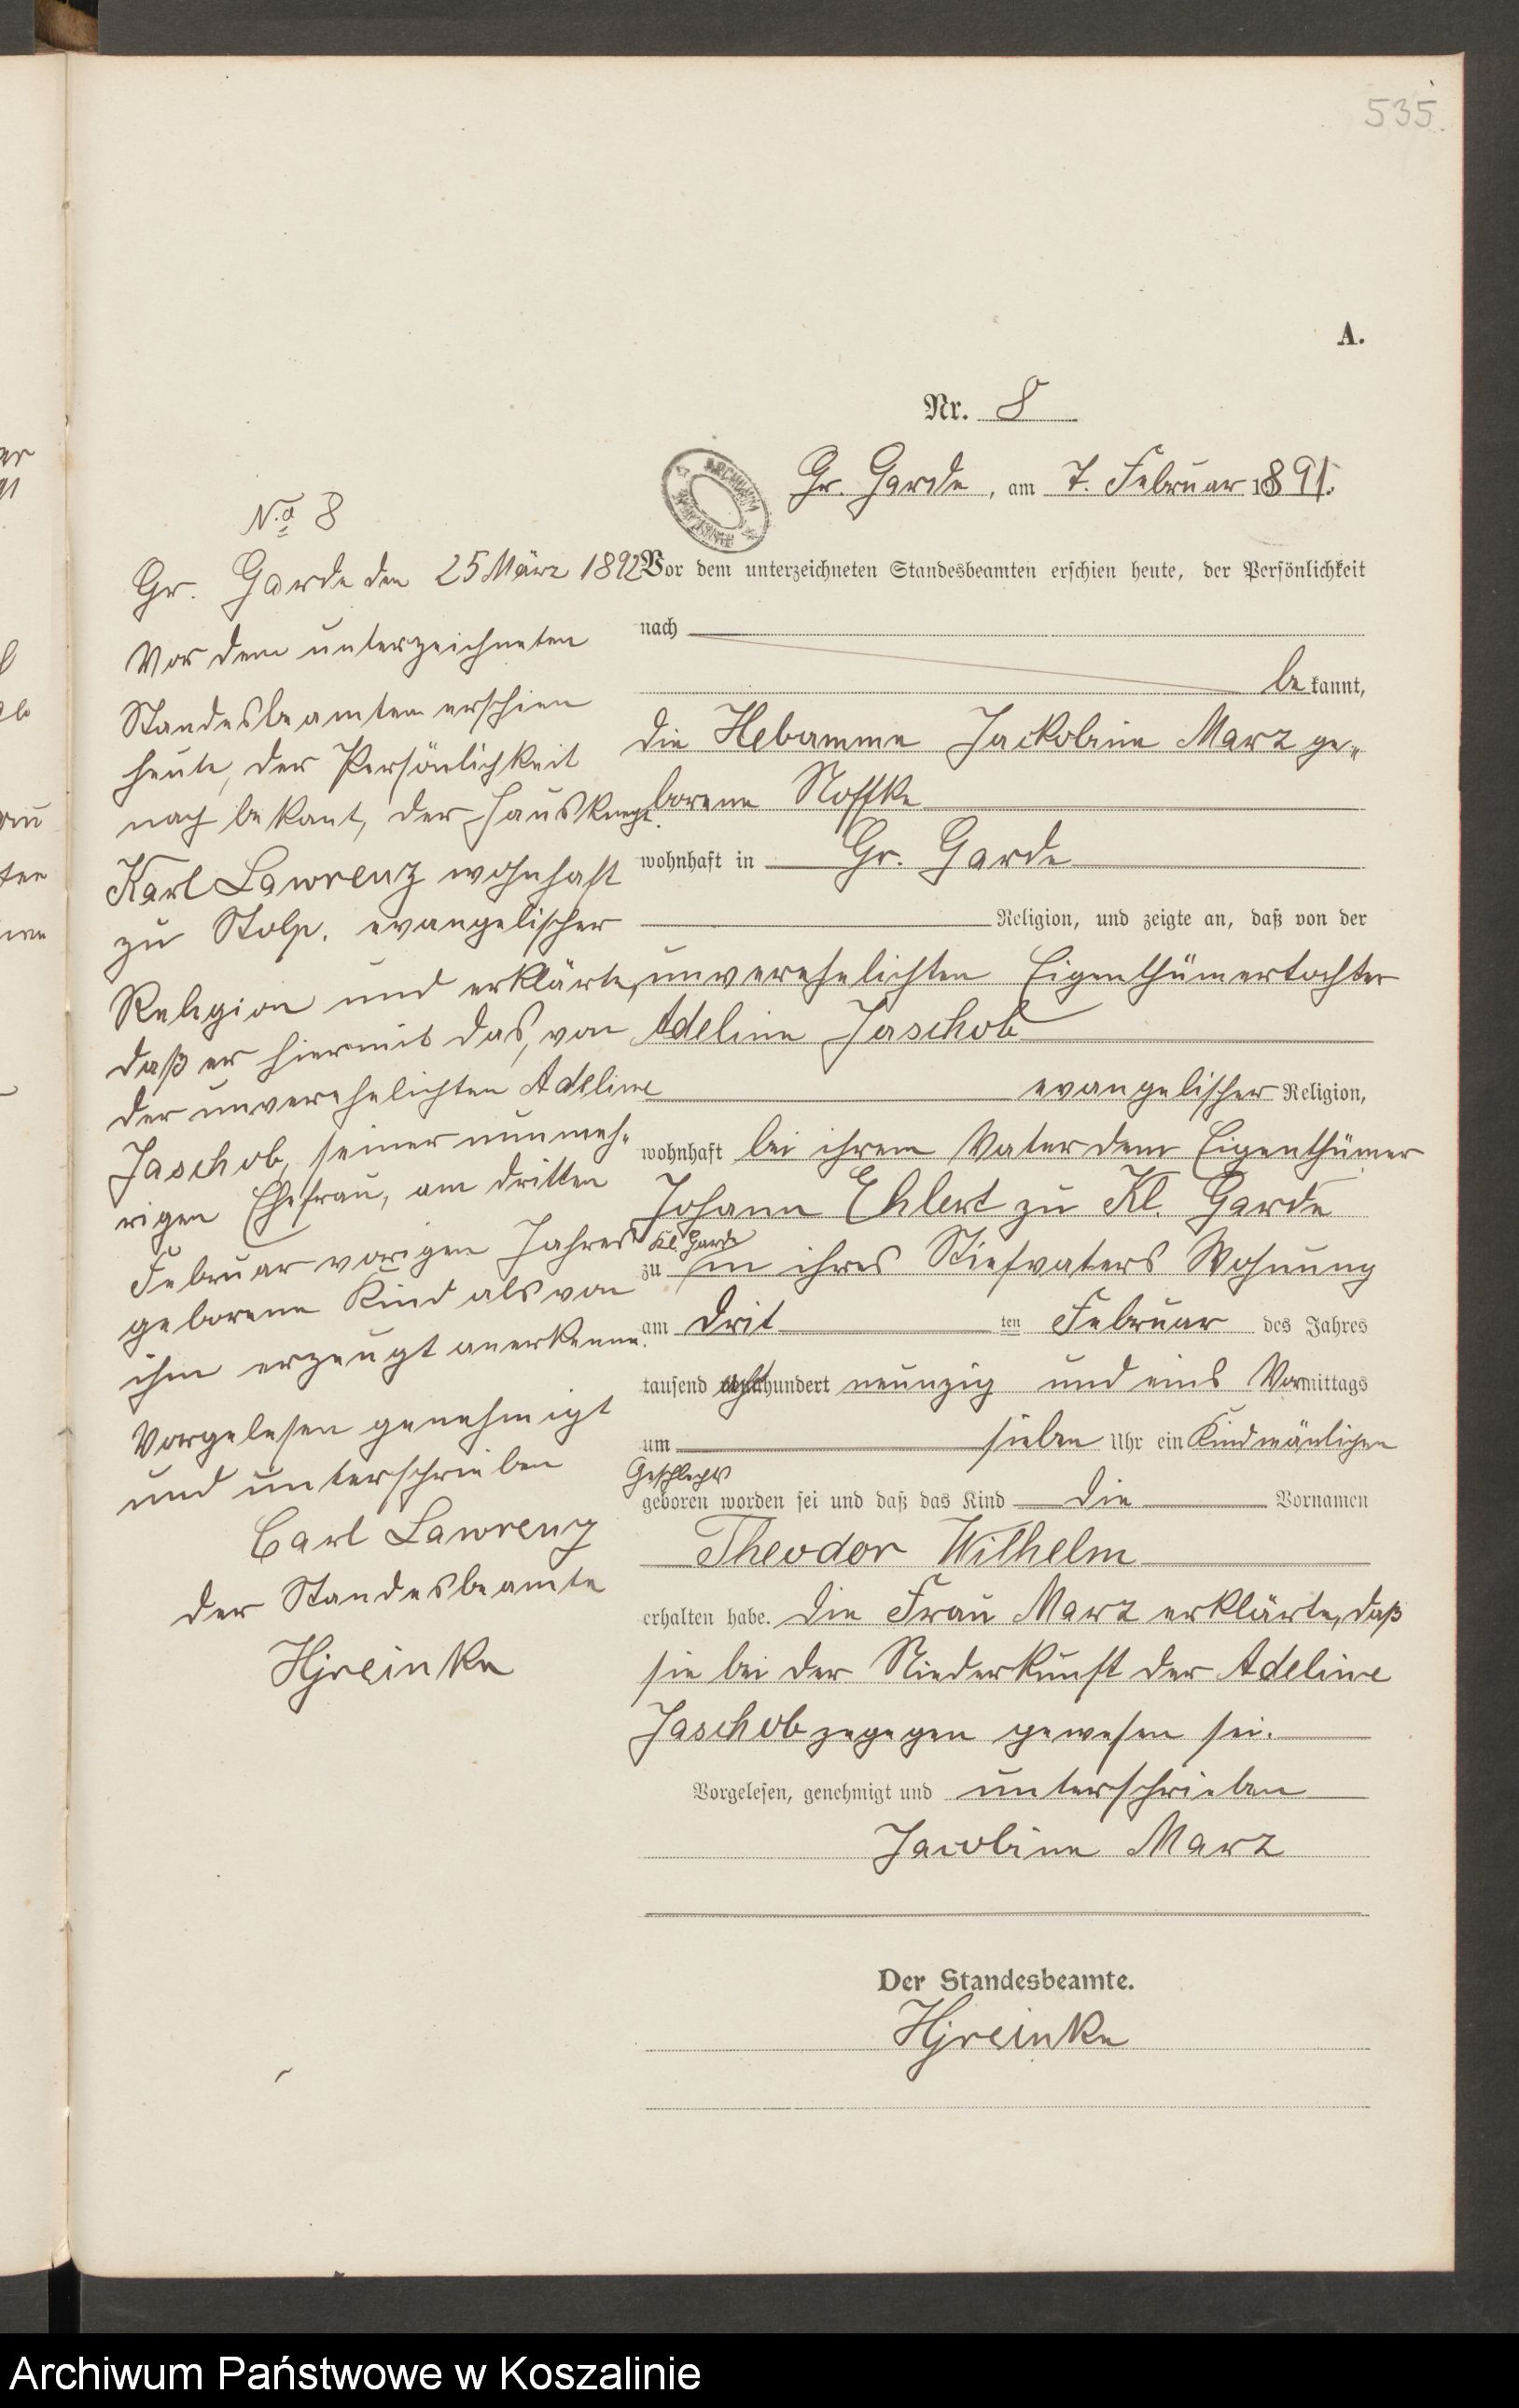 535.
A.
Nr. 8
Gr. Garde, am 7. Februar 1891.
Vor dem unterzeichneten Standesbeamten erschien heute, der Persönlichkeit
nach
be kannt,
die Hebamme Jackobine Marz ge„
borene Noffke
wohnhaft in Gr. Garde
Religion, und zeigte an, daß von der
unverehelichten Eigenthümertochter
Adeline Jaschob
evangelischer Religion,
wohnhaft bei ihrem Vater dem Eigenthümer
Johann Ehlert zu Kl. Garde
Kl. Garde
zu in ihres Stiefvaters Wohnung
am drit ten Februar des Jahres
tausend acht hundert neunzig und eins Vormittags
um sieben Uhr ein Kind mänlichen
Geschlechts
geboren worden sei und daß das Kind die Vornamen
Theodor Wilhelm
erhalten habe. Die Frau Marz erklärte, daß
sie bei der Niederkunft der Adeline
Jaschob zegegen gewesen sei.
Vorgelesen, genehmigt und unterschrieben
Jacobine Marz
Der Standesbeamte.
Hjreinke
No 8
Gr. Garde den 25 März 1892
Vor dem unterzeichneten
Standesbeamten erschien
heute, der Persönlichkeit
nach bekant, der Hausknecht
Karl Lawrenz wohnhaft
zu Stolp. evangelischer
Religion und erklärte,
daß er hiermit das, von
der unverehelichten Adeline
Jaschob, seiner nunmeh„
rigen Ehefrau, am dritten
Februar vorigen Jahres
geborene Kind als von
ihm erzeugt anerkenne.
Vorgelesen genehmigt
und unterschrieben
Carl Lawrenz
der Standesbeamte
Hjreinke
Archiwum Państwowe w Koszalinie